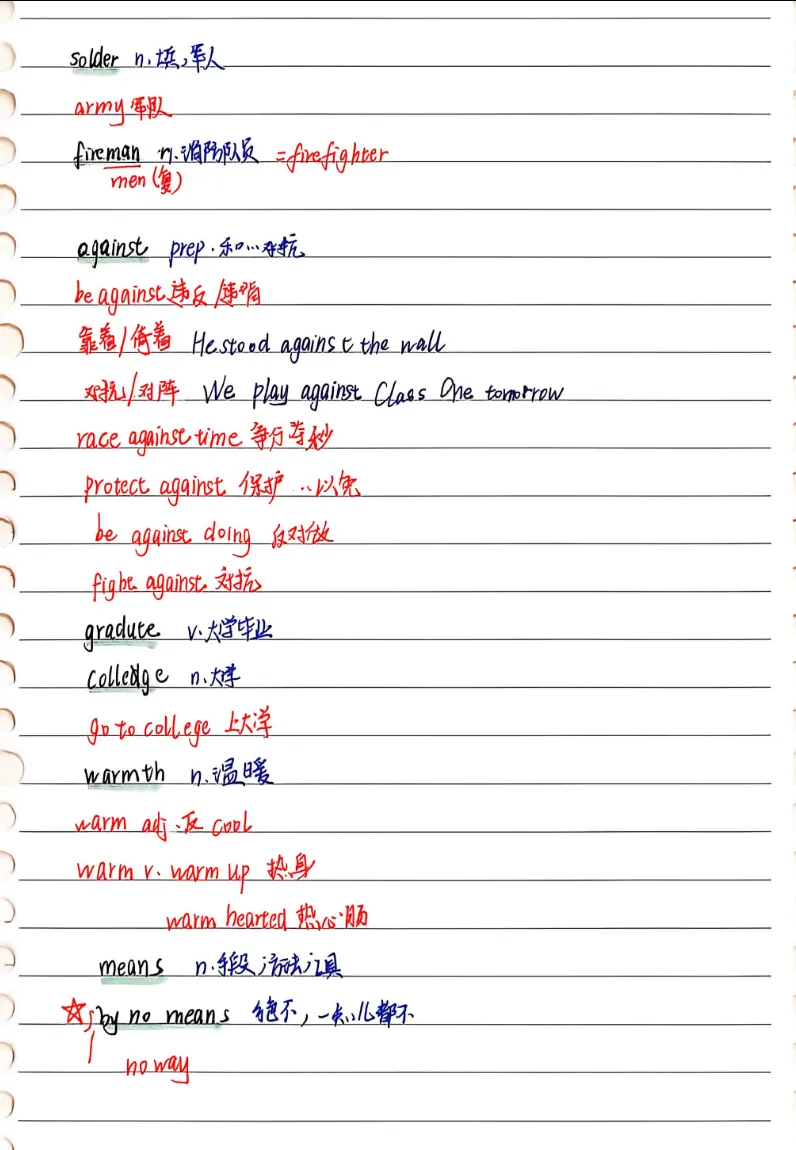 solder n.士兵,军人
army 军队
fireman n.消防队员 =firefighter
men(复)
against prep.和…对抗
be against 违反/违背
靠着/倚着 He stood against the wall
对抗/对阵 We play against Class One tomorrow
race against time 争分夺秒
protect against 保护..以免
be against doing 反对做
fight against 对抗
gradute v.大学毕业
colledge n.大学
go to college 上大学
warmth n.温暖
warm adj.反 cool
warm v. warm up 热身
warm hearted 热心肠
means n.手段,方法,工具
☆ by no means 绝不,一点儿都不
no way